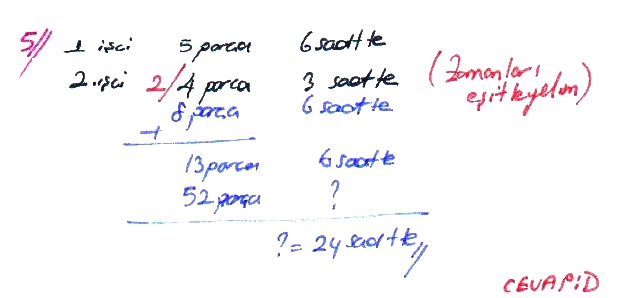 5// 1 işci 5 parca 6 saatte
2.işci 2/ 4 parca 3 saatte (Zamanları eşitleyelim)
8 parca 6 saatte
+
13 parca 6 saatte
52 parça ?
? = 24 saatte //
CEVAP:D